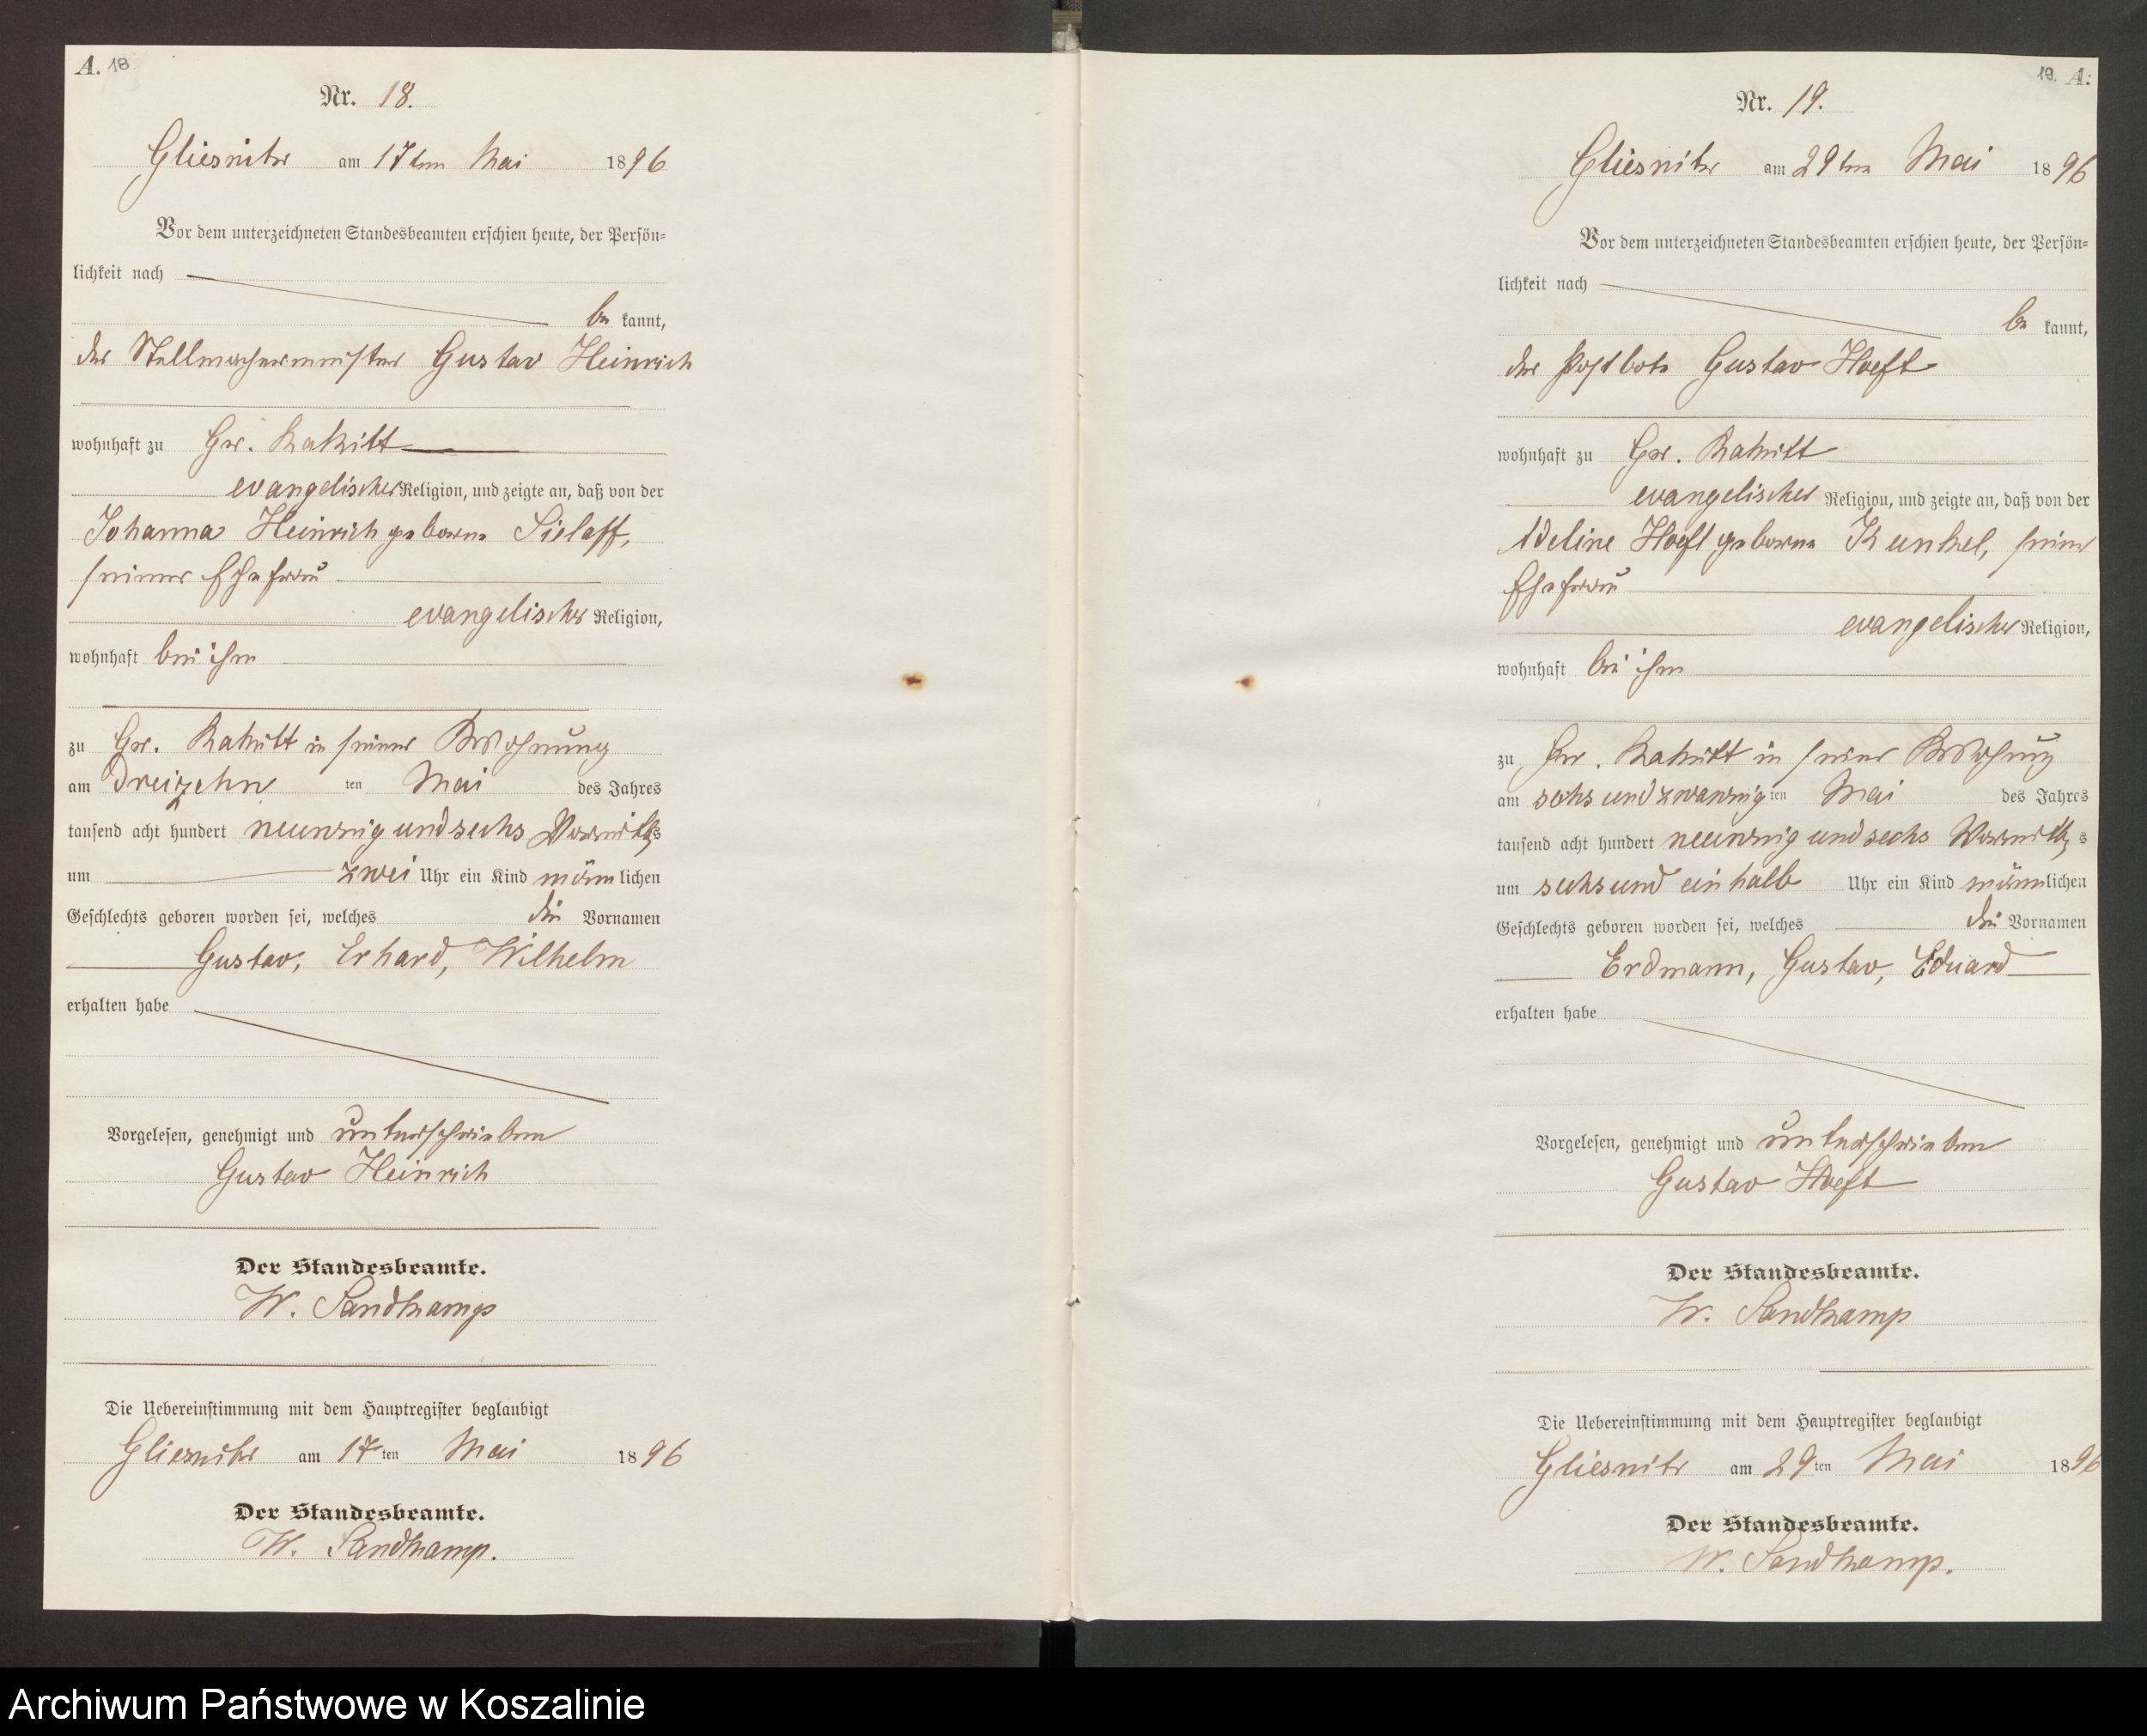 A. 18
Nr. 18.
Gliesnitz am 17ten Mai 1896
Vor dem unterzeichneten Standesbeamten erschien heute, der Persön=
lichkeit nach
be kannt,
der Stellmachermeister Gustav Heinrich
wohnhaft zu Gr. Rakitt
evangelischer Religion, und zeigte an, daß von der
Johanna Heinrich geborne Sielaff,
seiner Ehefrau
evangelischer Religion,
wohnhaft bei ihm
zu Gr. Rakitt in seiner Wohnung
am dreizehn ten Mai des Jahres
tausend acht hundert neunzig und sechs Vormittags
um zwei Uhr ein Kind männlichen
Geschlechts geboren worden sei, welches die Vornamen
Gustav, Erhard, Wilhelm
erhalten habe
Vorgelesen, genehmigt und unterschrieben
Gustav Heinrich
Der Standesbeamte.
W. Sandkamp
Die Uebereinstimmung mit dem Hauptregister beglaubigt
Gliesnitz am 17ten Mai 1896
Der Standesbeamte.
W. Sandkamp.
19. A:
Nr. 19.
Gliesnitz am 29ten Mai 1896
Vor dem unterzeichneten Standesbeamten erschien heute, der Persön=
lichkeit nach
be kannt,
der Postbote Gustav Hoeft
wohnhaft zu Gr. Rakitt
evangelischer Religion, und zeigte an, daß von der
Adeline Hoeft geborne Kunkel, seiner
Ehefrau
evangelischer Religion,
wohnhaft bei ihm
zu Gr. Rakitt in seiner Wohnung
am sechs und zwanzig ten Mai des Jahres
tausend acht hundert neunzig und sechs Vormittags
um sechs und ein halb Uhr ein Kind männlichen
Geschlechts geboren worden sei, welches die Vornamen
Erdmann, Gustav, Eduard
erhalten habe
Vorgelesen, genehmigt und unterschrieben
Gustav Hoeft
Der Standesbeamte.
W. Sandkamp
Die Uebereinstimmung mit dem Hauptregister beglaubigt
Gliesnitz am 29ten Mai 1896
Der Standesbeamte.
W. Sandkamp.
Archiwum Państwowe w Koszalinie